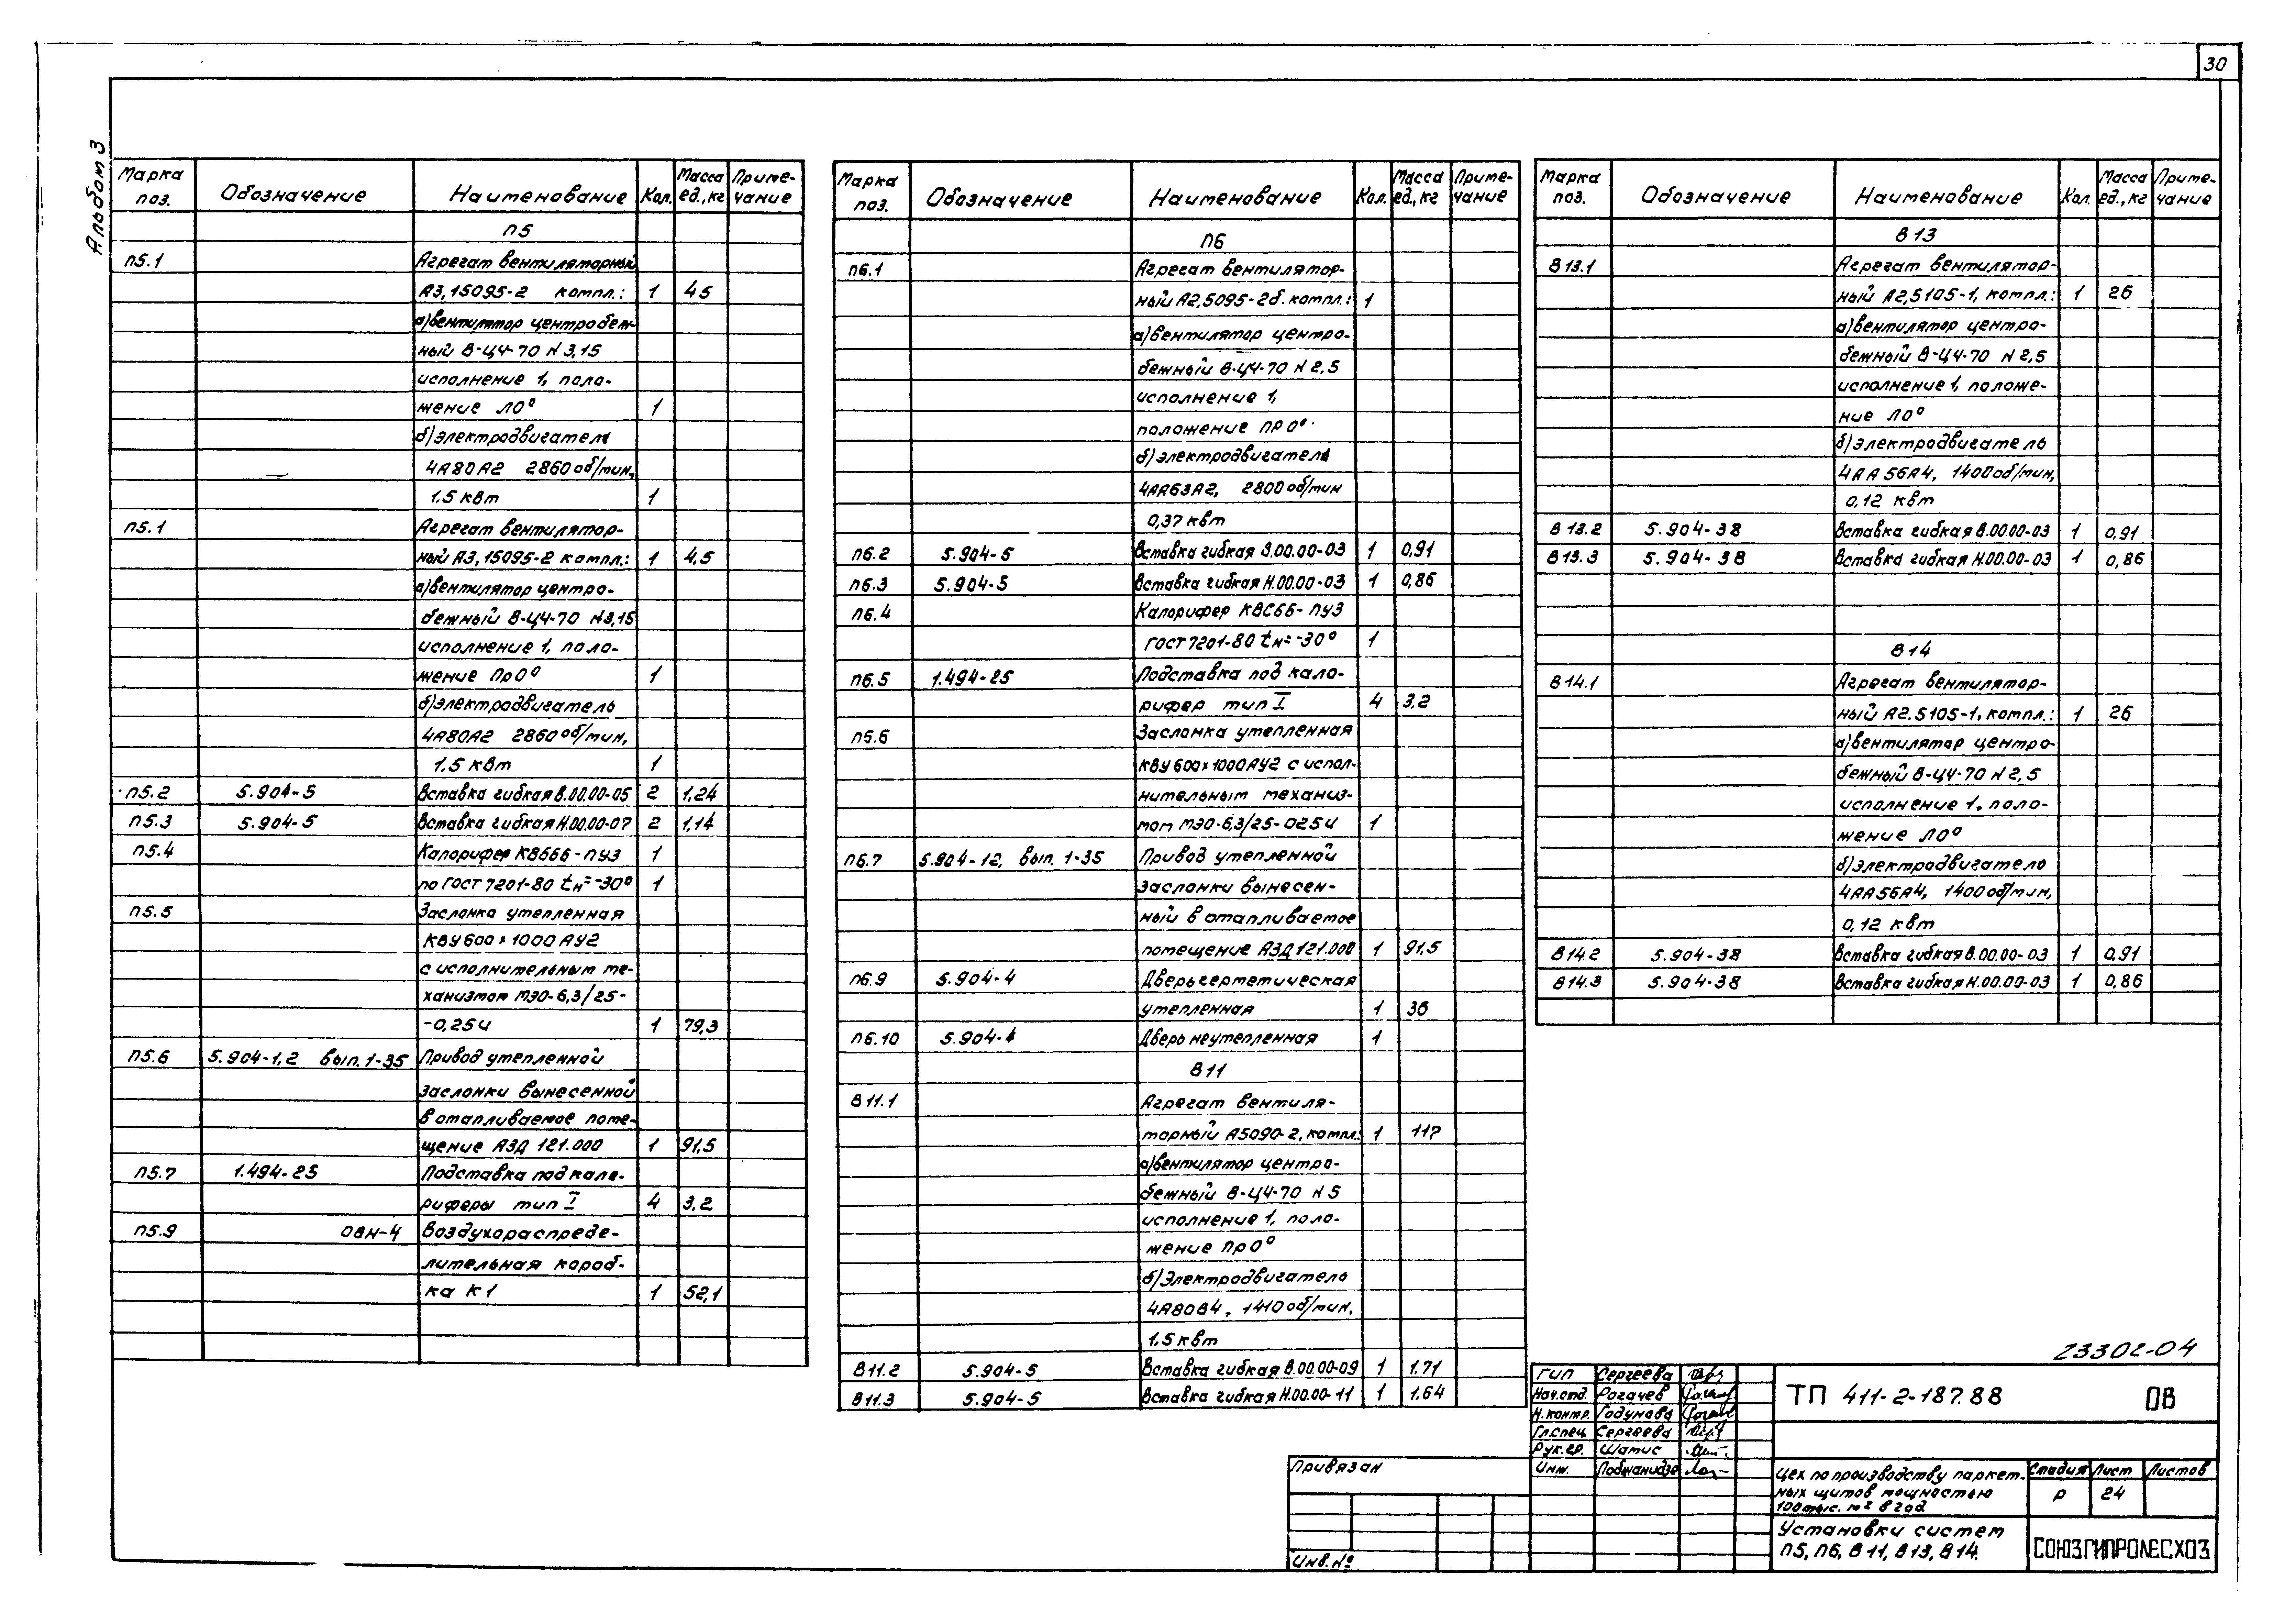 30
Альбом 3
Марка поз. Обозначение Наименование Кол. Масса ед.,кг Приме-чание
П5
П5.1 Агрегат вентиляторный
А3,15095-2 компл.: 1 45
а)вентилятор центробеж-
ный В-Ц4-70 N 3,15
исполнение 1, поло-
жение Л0° 1
б)электродвигатель
4А80А2 2860 об/мин,
1,5 квт 1
П5.1 Агрегат вентилятор-
ный А3,15095-2 компл.: 1 4,5
а)вентилятор центро-
бежный В-Ц4-70 N3,15
исполнение 1, поло-
жение Пр0° 1
б)электродвигатель
4А80А2 2860 об/мин,
1,5 квт 1
П5.2 5.904-5 Вставка гибкая В.00.00-05 2 1,24
П5.3 5.904-5 Вставка гибкая Н.00.00-07 2 1,14
П5.4 Калорифер КВБ66-ПУЗ 1
по ГОСТ 7201-80 tн=-30° 1
П5.5 Заслонка утепленная
КВУ 600х1000 АУ2
с исполнительным ме-
ханизмом МЭО-6,3/25-
-0,25И 1 79,3
П5.6 5.904-1,2 вып.1-35 Привод утепленной
заслонки вынесенной
в отапливаемое поме-
щение АЗД 121.000 1 91,5
П5.7 1.494-25 Подставка под кале-
риферы тип I 4 3,2
П5.9 ОВН-4 Воздухораспреде-
лительная короб-
ка К1 1 52,1
Марка поз. Обозначение Наименование Кол. Масса ед.,кг Приме-чание
П6
П6.1 Агрегат вентилятор-
ный А2,5095-2б. компл.: 1
а)вентилятор центро-
бежный В-Ц4-70 N 2,5
исполнение 1,
положение ПР0°
б)электродвигатель
4АА63А2, 2800 об/мин
0,37 квт
П6.2 5.904-5 Вставка гибкая В.00.00-03 1 0,91
П6.3 5.904-5 Вставка гибкая Н.00.00-03 1 0,86
П6.4 Калорифер КВС66-ПУЗ
ГОСТ 7201-80 tн=-30° 1
П6.5 1.494-25 Подставка под кало-
рифер тип I 4 3.2
П5.6 Заслонка утепленная
КВУ 600х1000АУ2 с испол-
нительным механиз-
мом МЭО-6,3/25-025И 1
П6.7 5.904-12, вып. 1-35 Привод утепленной
заслонки вынесен-
ный в отапливаемое
помещение АЗД 121.000 1 91,5
П6.9 5.904-4 Дверь герметическая
утепленная 1 36
П6.10 5.904-4 Дверь неутепленная 1
В11
В11.1 Агрегат вентиля-
торный А5090-2, компл.: 1 117
а)вентилятор центро-
бежный В-Ц4-70 N 5
исполнение 1, поло-
жение Пр0°
б)Электродвигатель
4А80В4, 1410 об/мин,
1,5 квт
В11.2 5.904-5 Вставка гибкая В.00.00-09 1 1.71
В11.3 5.904-5 Вставка гибкая Н.00.00-11 1 1,64
Марка поз. Обозначение Наименование Кол. Масса ед.,кг Приме-чание
В13
В13.1 Агрегат вентилятор-
ный А2,5105-1, компл.: 1 26
а)вентилятор центро-
бежный В-Ц4-70 N 2,5
исполнение 1, положе-
ние Л0°
б)электродвигатель
4АА56А4, 1400 об/мин,
0,12 квт
В13.2 5.904-38 Вставка гибкая В.00.00-03 1 0,91
В13.3 5.904-38 Вставка гибкая Н.00.00-03 1 0,86
В14
В14.1 Агрегат вентилятор-
ный А2.5105-1, компл.: 1 26
а)вентилятор центро-
бежный В-Ц4-70 N 2,5
исполнение 1, поло-
жение Л0°
б)электродвигатель
4АА56А4, 1400 об/мин,
0,12 квт
В14.2 5.904-38 Вставка гибкая В.00.00-03 1 0,91
В14.3 5.904-38 Вставка гибкая Н.00.00-03 1 0,86
23302-04
ГИП Сергеева
Нач.отд. Рогачев
Н.контр. Годунова
Гл.спец. Сергеева
Рук.гр. Шатис
Инж.
ТП 411-2-187.88 ОВ
Цех по производству паркет-
ных щитов мощностью
100 тыс. м² в год
Стадия Лист Листов
Р 24
Установки систем
П5, П6, В11, В13, В14.
СОЮЗГИПРОЛЕСХОЗ
Привязан
Инв.№